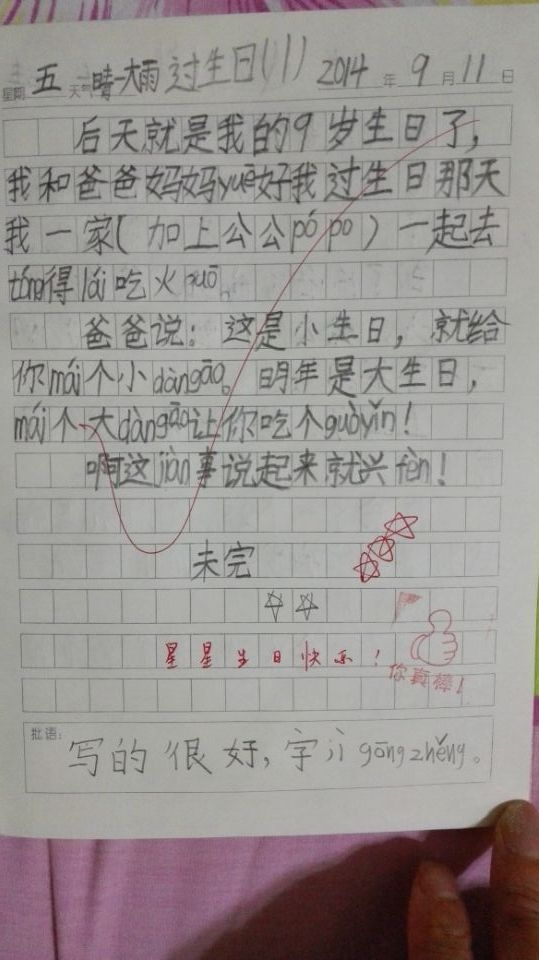 星期 五 天气 晴-大雨 过生日(1) 2014 年 9 月 11 日
后天就是我的9岁生日了，
我和爸爸妈妈yuē好我过生日那天
我一家（加上公公pó po）一起去
tóng得lái吃火guō。
爸爸说：这是小生日，就给
你mái个小dàngāo。明年是大生日，
mái个大dàngāo让你吃个guòyǐn！
啊这jiàn事说起来就兴fèn！
未完
星星生日快乐！
你真棒！
批语：
写的很好，字jì gōngzhěng。